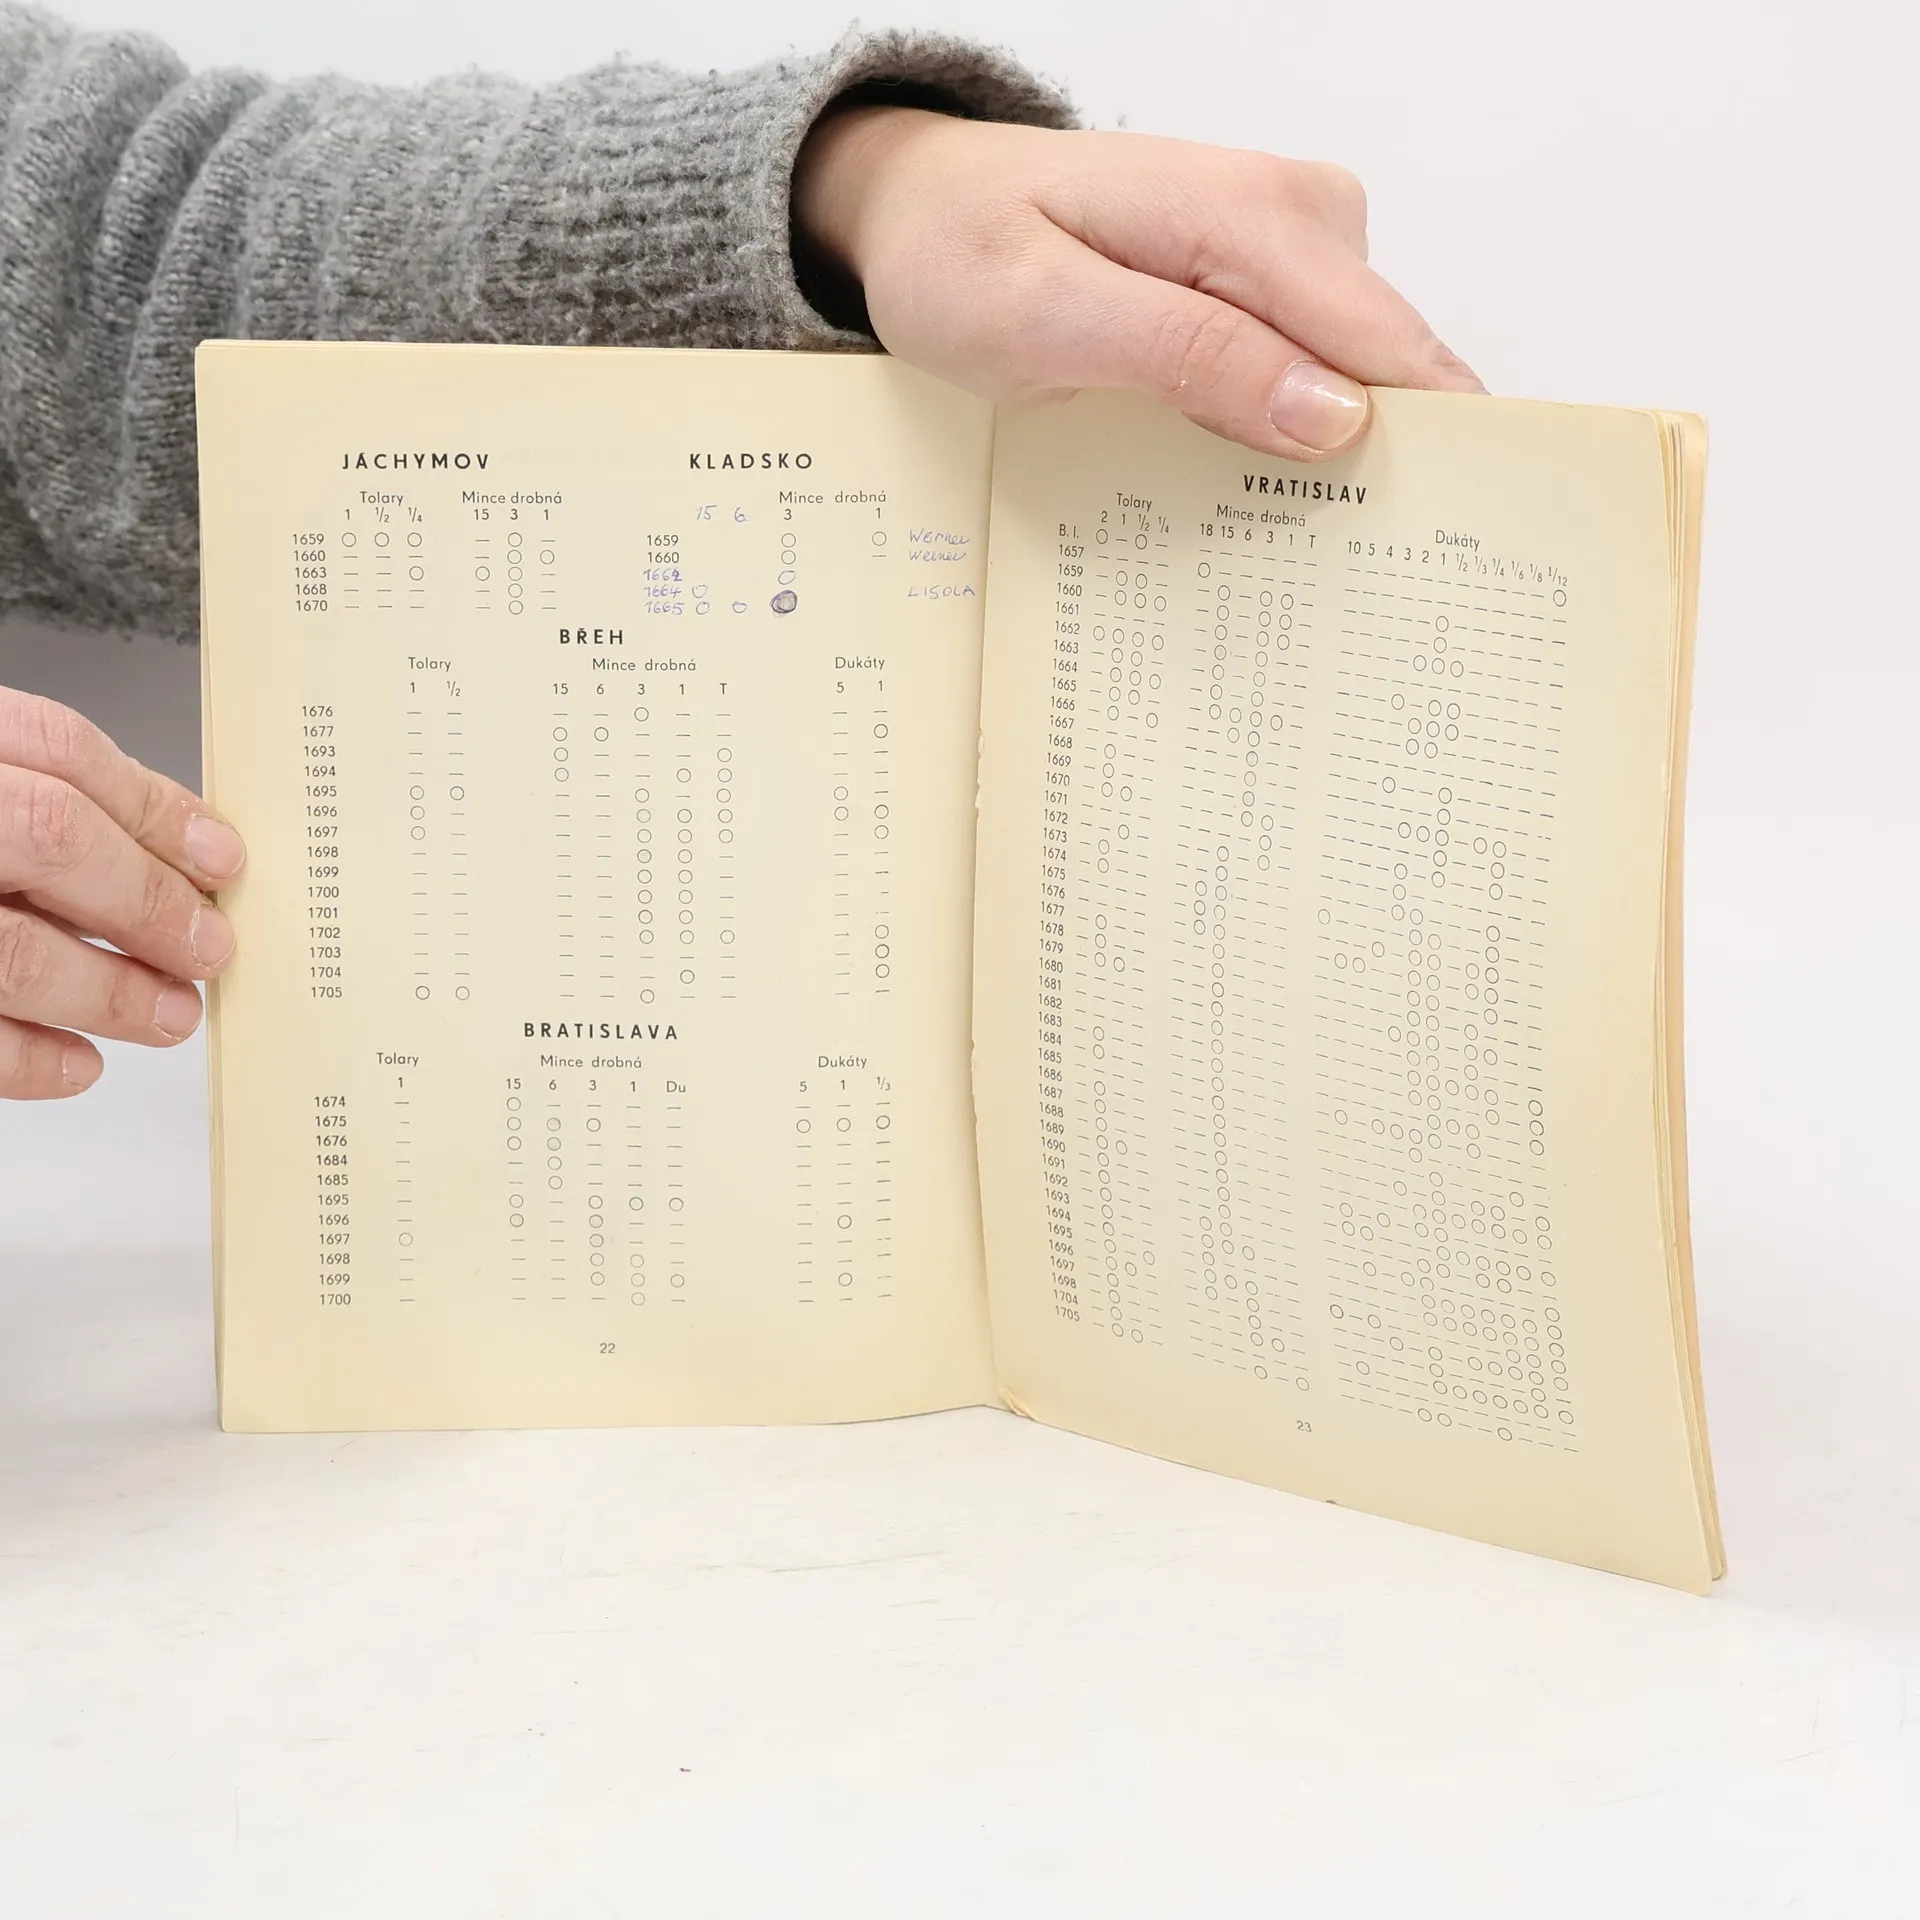 JÁCHYMOV
Tolary Mince drobná
1 1/2 1/4 15 3 1
1659
1660
1663
1668
1670
KLADSKO
Mince drobná
15 6 3 1
1659 Werner
1660 Werner
1662
1664 LISOLA
1665
BŘEH
Tolary Mince drobná Dukáty
1 1/2 15 6 3 1 T 5 1
1676
1677
1693
1694
1695
1696
1697
1698
1699
1700
1701
1702
1703
1704
1705
BRATISLAVA
Tolary Mince drobná Dukáty
1 15 6 3 1 Du 5 1 1/3
1674
1675
1676
1684
1685
1695
1696
1697
1698
1699
1700
22
VRATISLAV
Tolary Mince drobná Dukáty
2 1 1/2 1/4 18 15 6 3 1 T 10 5 4 3 2 1 1/2 1/3 1/4 1/6 1/8 1/12
B. l.
1657
1659
1660
1661
1662
1663
1664
1665
1666
1667
1668
1669
1670
1671
1672
1673
1674
1675
1676
1677
1678
1679
1680
1681
1682
1683
1684
1685
1686
1687
1688
1689
1690
1691
1692
1693
1694
1695
1696
1697
1698
1704
1705
23